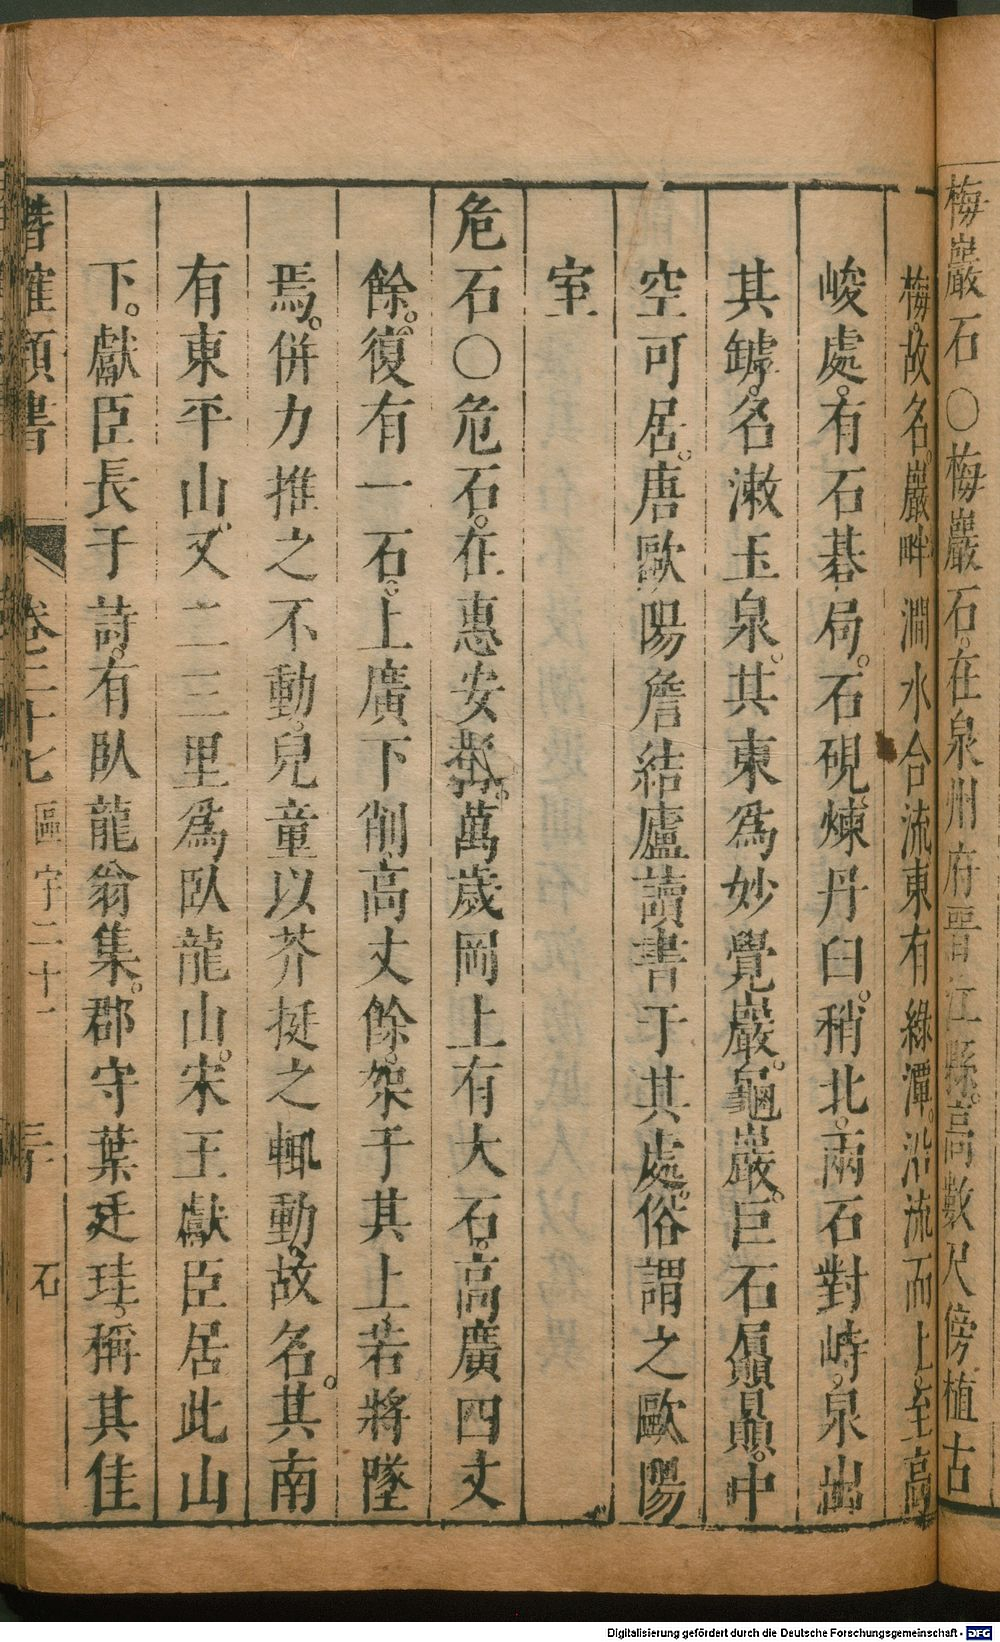 梅巖石○梅巖石。在泉州府晉江縣。高數尺傍植古
梅。故名。巖畔澗水合流東有綠潭。沿流而上。至高
峻處。有石碁局。石硯煉丹臼。稍北。兩石對峙。泉出
其罅。名漱玉泉。其東爲妙覺巖。龜巖。巨石屭贔。中
空可居。唐歐陽詹結廬讀書于其處。俗謂之歐陽
室
危石○危石。在惠安鄀。萬歲岡上有大石。高廣四丈
餘。復有一石。上廣下削。高丈餘。架于其上。若將墜
焉。併力推之不動。兒童以芥挺之輒動。故名。其南
有東平山。又二三里爲臥龍山。宋王獻臣居此山
下。獻臣長于詩。有臥龍翁集。郡守葉廷珪。稱其佳
潛確類書 卷二十七 區宇二十一 石
Digitalisierung gefördert durch die Deutsche Forschungsgemeinschaft - DFG